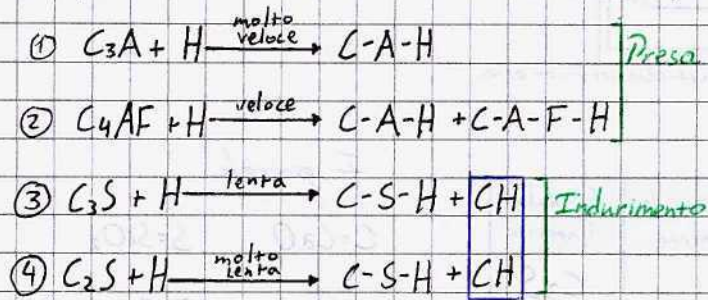 ① C₃A + H molto veloce → C-A-H
② C₄AF + H veloce → C-A-H + C-A-F-H
Presa
③ C₃S + H lenta → C-S-H + CH
④ C₂S + H molto lenta → C-S-H + CH
Indurimento